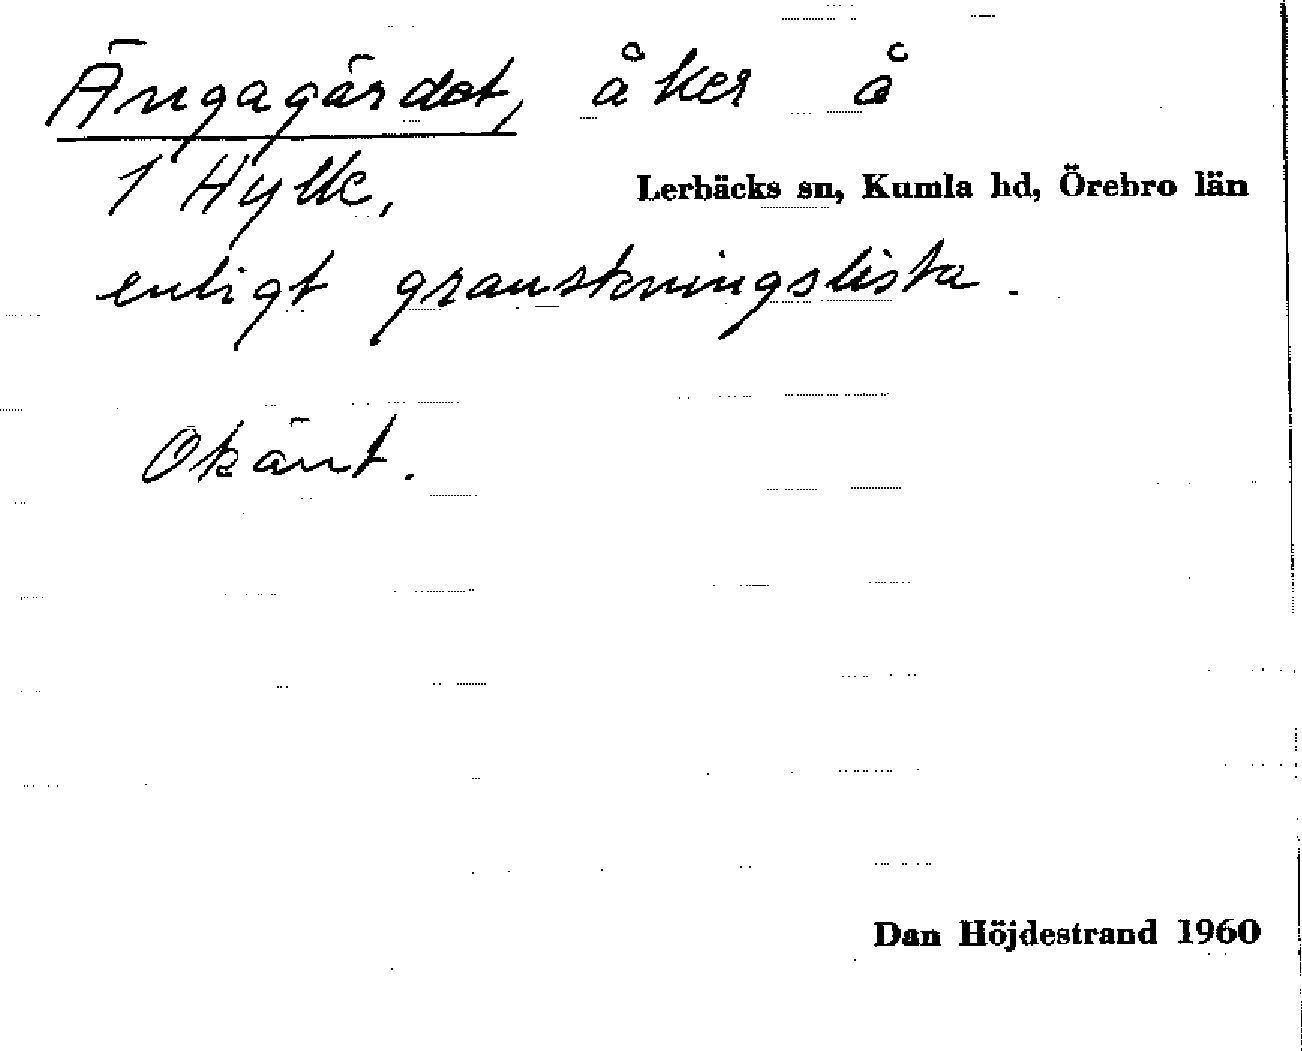 Ängagärdet, åker å
1 Hylle,
Lerbäcks sn, Kumla hd, Örebro län
enligt granskningslista.
Okänt.
Dan Höjdestrand 1960